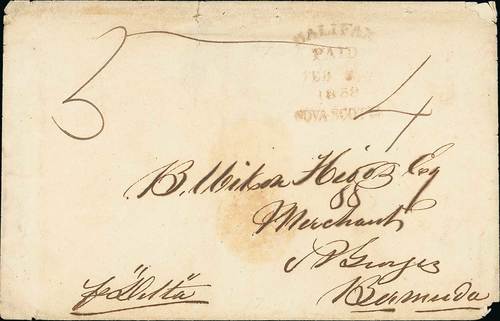 HALIFAX
PAID
FEB
1858
NOVA SCOTIA
5
4
B. Wilson Higgs Esq
88
Merchant
St Georges
Bermuda
pr "Delta"